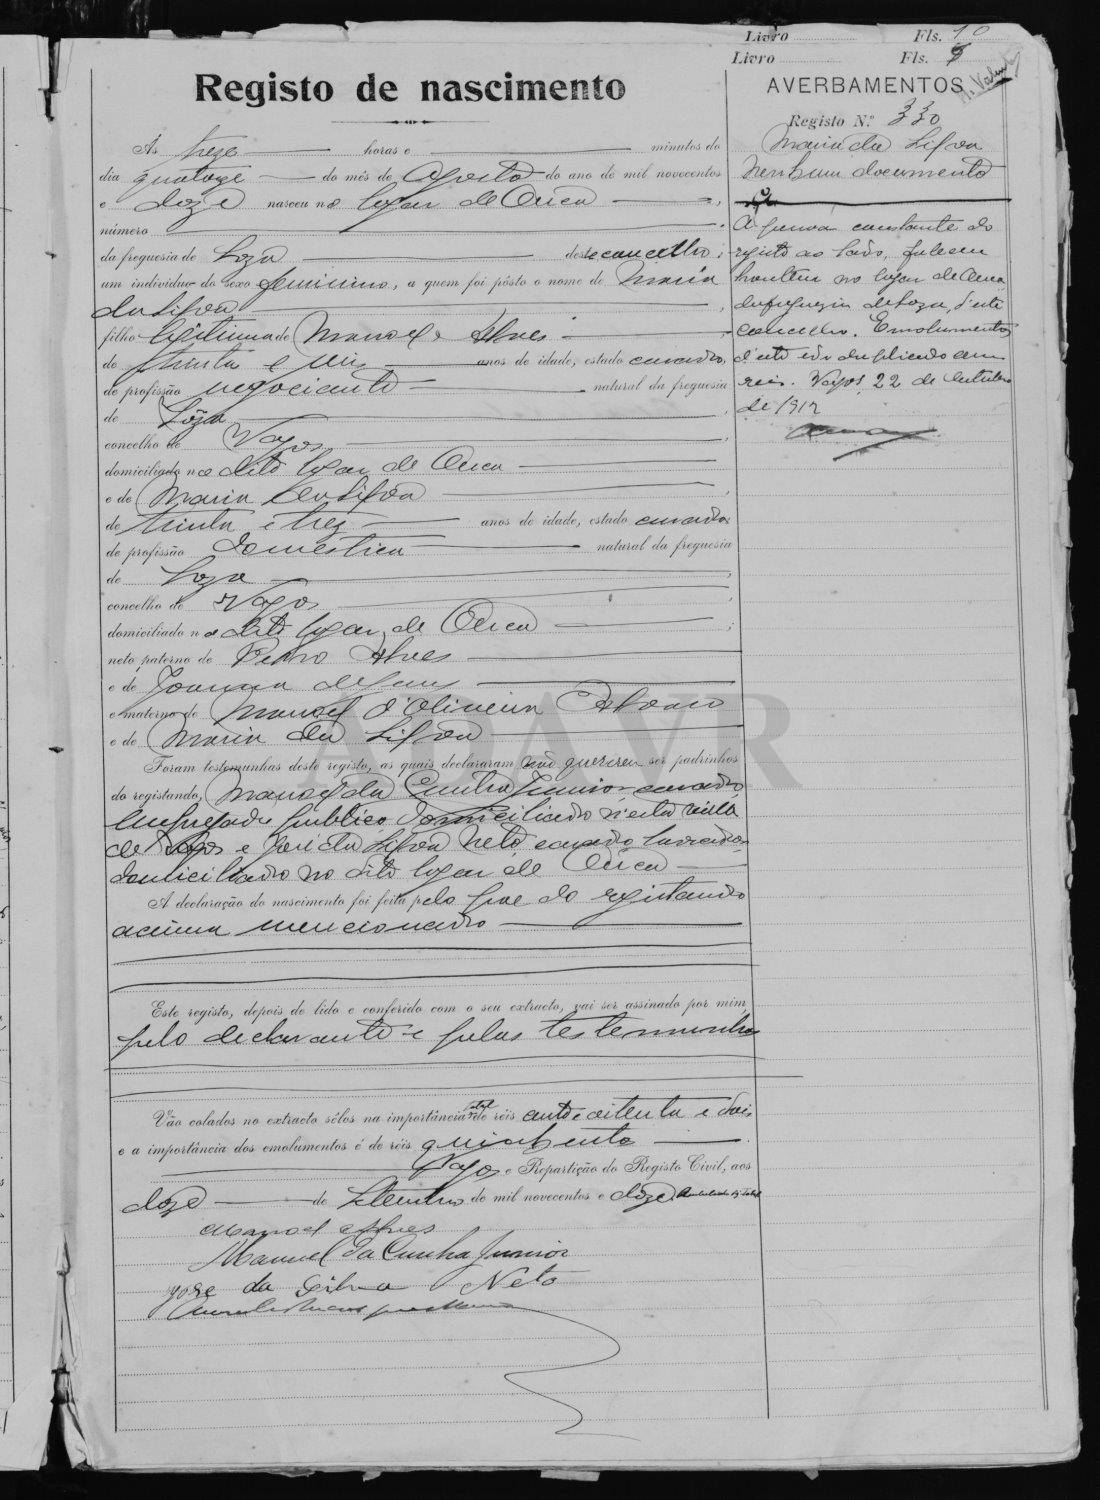 Livro Fls. 10
Livro Fls. 9
Registo de nascimento
AVERBAMENTOS
Registo N.º 330
Maria da Silva
Nenhum documento
A pessoa constante do
registo ao lado, faleceu
hontem no logar de
da freguezia de Soza, d'este
concelho. Emolumentos
d'este e do duplicado cem
reis. Vagos, 22 de Outubro
de 1912
Ás treze horas e minutos do
dia quatorze do mês de Agosto do ano de mil novecentos
e doze nasceu no logar de
número
da freguesia de Soza deste concelho;
um individuo do sexo feminino, a quem foi pôsto o nome de Maria
da Silva
filho legitima de Manoel Alves
de trinta e seis anos de idade, estado casado,
de profissão negociante natural da freguesia
de Soza
concelho de Vagos
domiciliado no dito logar de
e de Maria da Silva
de trinta e trez anos de idade, estado casada
de profissão domestica natural da freguesia
de Soza
concelho de Vagos
domiciliado no dito logar de
neto paterno de Pedro Alves
e de Joanna de Jesus
e materno de Manoel d'Oliveira
e de Maria da Silva
Foram testemunhas deste registo, as quais declararam não quererem ser padrinhos
do registando, Manoel da Cunha Junior casado
empregado publico domiciliado n'esta villa
de Vagos e José da Silva Neto casado lavrador
domiciliado no dito logar de
A declaração do nascimento foi feita pelo pae do registando
acima mencionado
Este registo, depois de lido e conferido com o seu extracto, vai ser assinado por mim,
pelo declarante e pelas testemunhas
Vão colados no extracto sêlos na importância total de réis cento e oitenta e dois
e a importância dos emolumentos é de réis quinhentos
Vagos e Repartição do Registo Civil, aos
doze de Setembro de mil novecentos e doze.
Manoel Alves
Manuel da Cunha Junior
José da Silva Neto
ADAVR